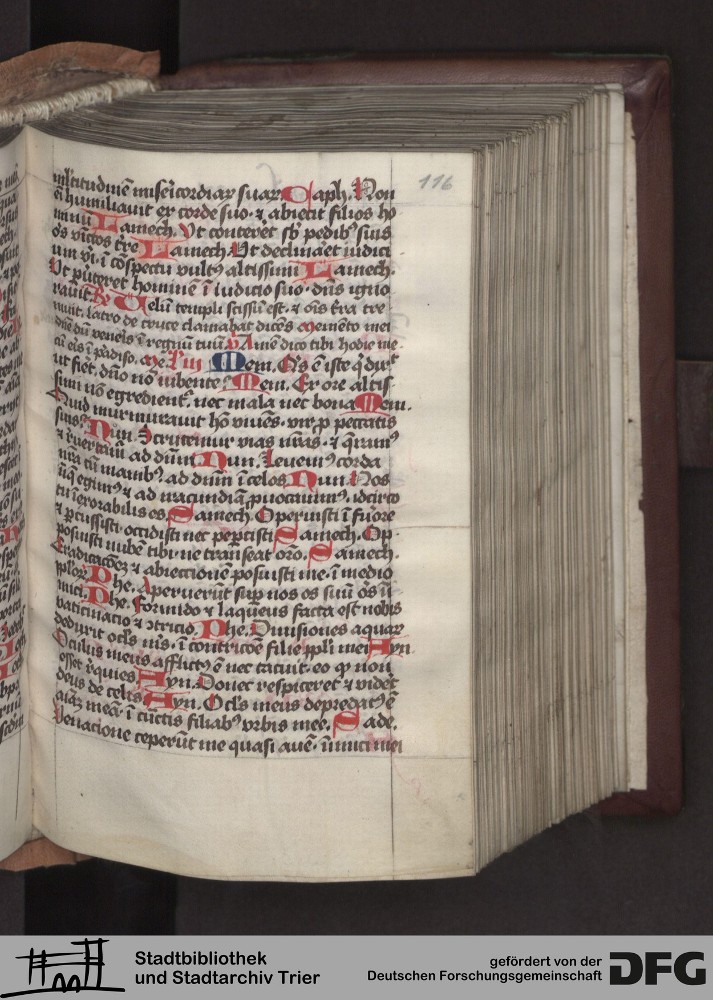 116
ml'titudinē misericordiar suar Caph. Non
eī humiliauit ex corde suo. ⁊ abiecit filios ho
minū Lamech. Vt contereʳet sb̄ pedib⁹ suis
oēs vīctos tr̄e Lamech. Vt declinaʳet iudiciū
um viri ī cōspectu vult⁹ altissimi Lamech.
Vt puerteret hominē ī iudicio suo. dn̄s igno
rauit. Ry Velū templi scissū est. ⁊ oīs tr̄a tre
muit. latro de cruce clamabat dicēs memēto mei
dn̄e dū veneris ī regnū tuū. v̄ Amē dico tibi hodie me
cū eis ī p̄adiso. me. Mem. Q's ē iste q' dixit
ut fieret. dn̄o nō iubente. Mem. Ex ore altis
simi nō egredient̄. nec mala nec bona Mem.
Quid murmurauit hō viuēs. vir p̄ peccatis
suis. Nun Scrutemur vias nr̄as. ⁊ q̄ram⁹
⁊ reuertam̄ ad dn̄m Nun. Leuem⁹ corda
nr̄a cū manib⁹. ad dn̄m ī celos Nun. Nos
iniq̄ egim⁹ ⁊ ad iracundiā puocauim⁹. idcirco
tu īexorabilis es. Samech. Operuisti ī furore
⁊ percussisti nos. occidisti nec pepcisti Samech. Op
posuisti nubē tibi. ne transeat oro. Samech.
Eradicacōez ⁊ abiectionē posuisti me. ī medio
plor̄. Phe. Aperuerūt sup nos os suū oēs in
imici Phe. Formido ⁊ laqueus facta est nobis
vaticinacio ⁊ ɔtricio. Phe. Diuisiones aquar
deduxit ocl's m's. ī contricōe filie ppli mei Ayn.
Oculus meus afflict⁹ ē nec tacuit. eo q̄ non
esset requies. Ayn. Donec respiceret ⁊ videret
deus de celis Ayn. Ocl's meus depredat⁹ ē
aīaz meā. ī cūctis filiab⁹ vrbis mee. Sade.
Venacione ceperūt me quasi auē. inimici mei
Stadtbibliothek
und Stadtarchiv Trier
gefördert von der
Deutschen Forschungsgemeinschaft
DFG